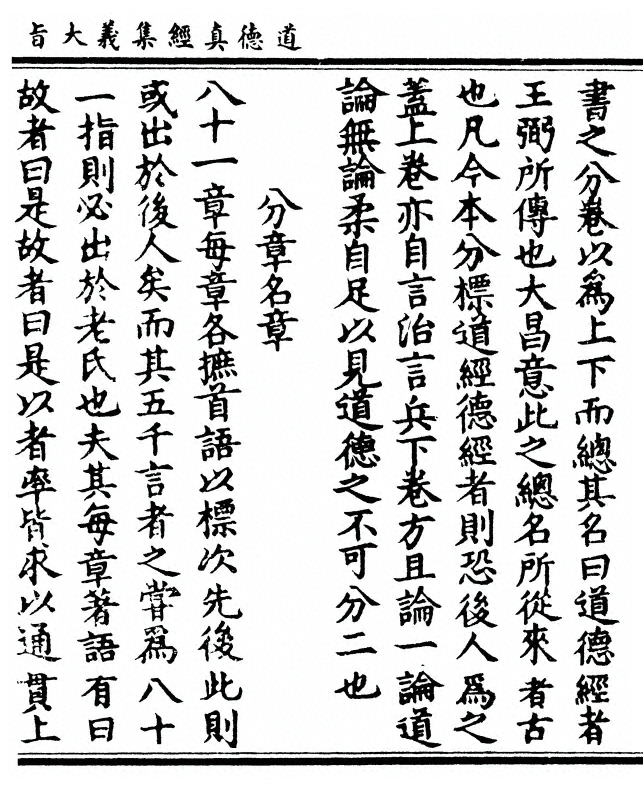 道德真經集義大旨
書之分卷以爲上下而總其名曰道德經者
王弼所傳也大昌意此之總名所從來者古
也凡今本分標道經德經者則恐後人爲之
蓋上卷亦自言治言兵下卷方且論一論道
論無論柔自足以見道德之不可分二也
分章名章
八十一章每章各摭首語以標次先後此則
或出於後人矣而其五千言者之甞爲八十
一指則必出於老氏也夫其每章著語有曰
故者曰是故者曰是以者率皆求以通貫上